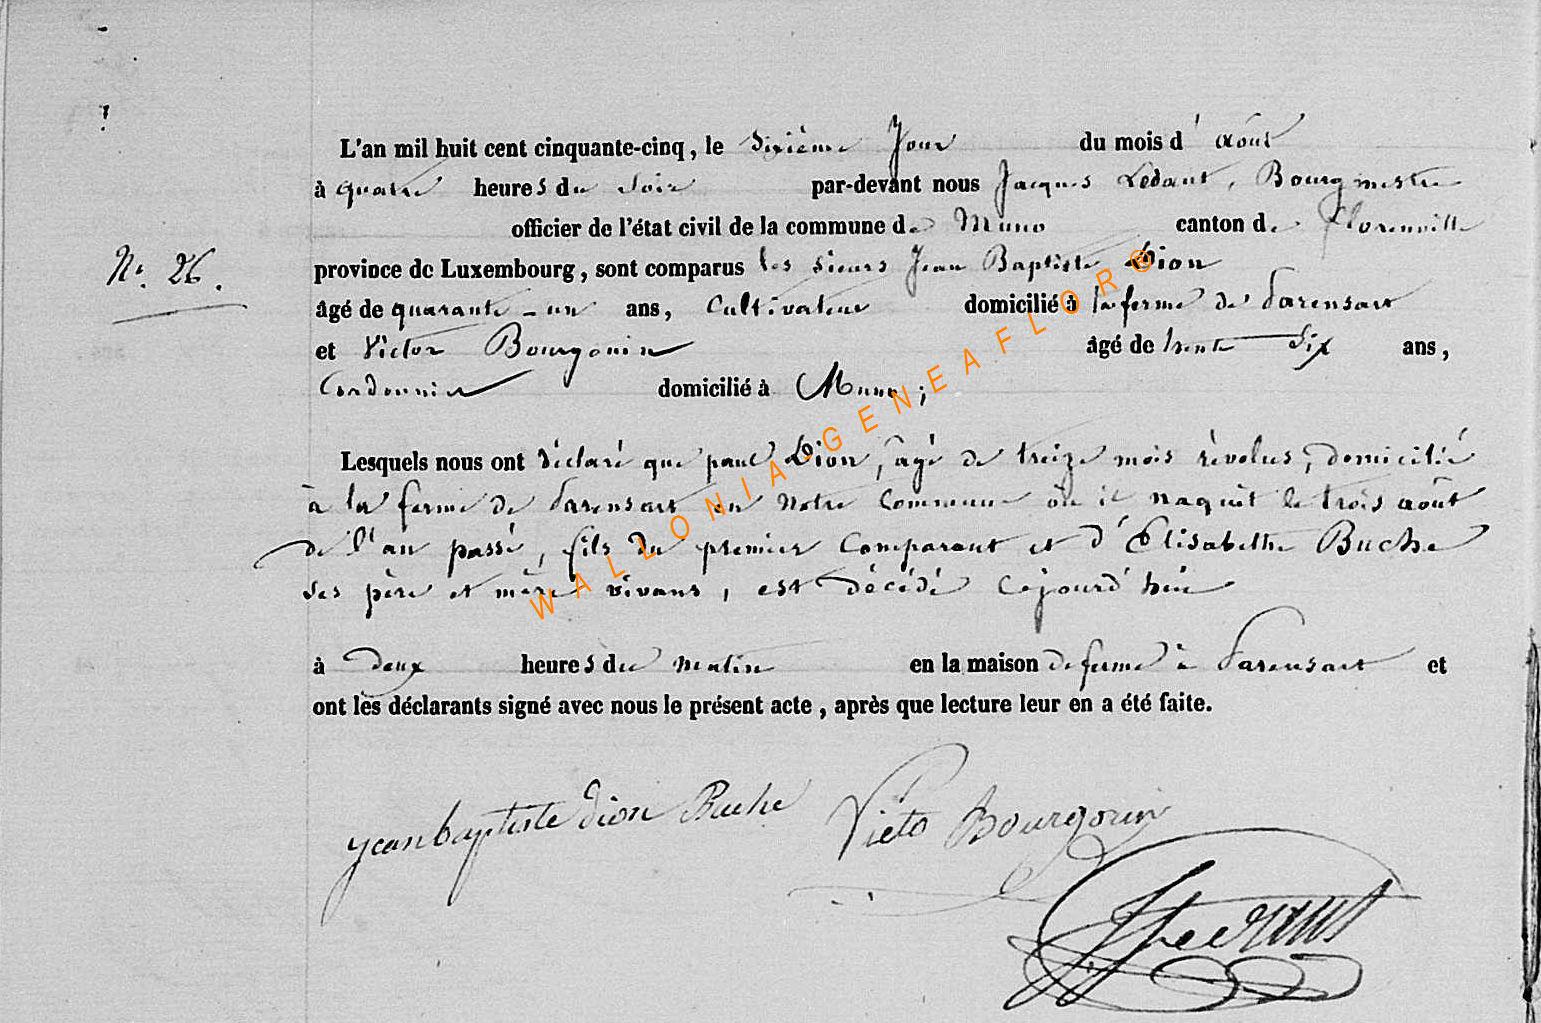 L'an mil huit cent cinquante-cinq, le Sixième Jour du mois d'août
à quatre heures du Soir par-devant nous Jacques Ledant, Bourgmestre
officier de l'état civil de la commune de Muno canton de Florenville
N.° 26.
province de Luxembourg, sont comparus les Sieurs Jean Baptiste Dion
âgé de quarante-un ans, Cultivateur domicilié à la ferme de Larensart
et Victor Bourgonin âgé de trente Six ans,
Cordonnier domicilié à Muno;
Lesquels nous ont déclaré que paul Dion, âgé de treize mois révolus, domicilié
à la ferme de Larensart en notre Commune où il naquit le trois août
de l'an passé, fils du premier Comparant et d'Elisabethe Buche
ses père et mère vivans, est décédé Cejourd'hui
à Deux heures du matin en la maison de ferme à Larensart et
ont les déclarants signé avec nous le présent acte, après que lecture leur en a été faite.
jean baptiste dion Buche Victo Bourgonin
Ledant
WALLONIA-GENEAFLOR©